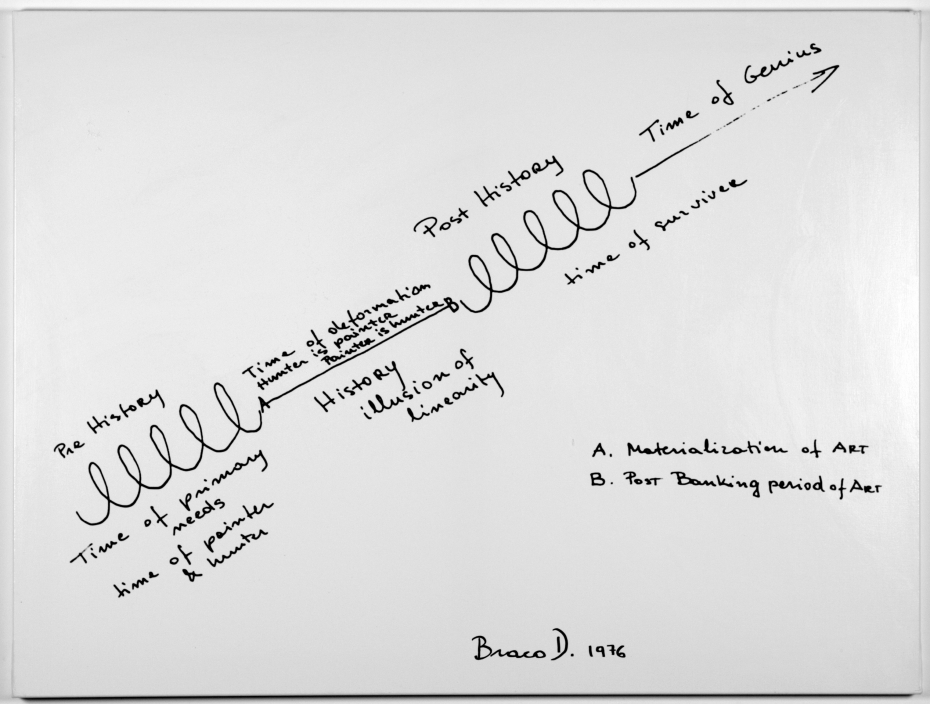 Time of Genius
Post History
time of surviver
Time of deformation
Hunter is painter
Painter is hunter
B
A
History
illusion of
linearity
Pre History
Time of primary
needs
time of painter
& hunter
A. Materialization of ART
B. Post Banking period of ART
Braco D. 1976